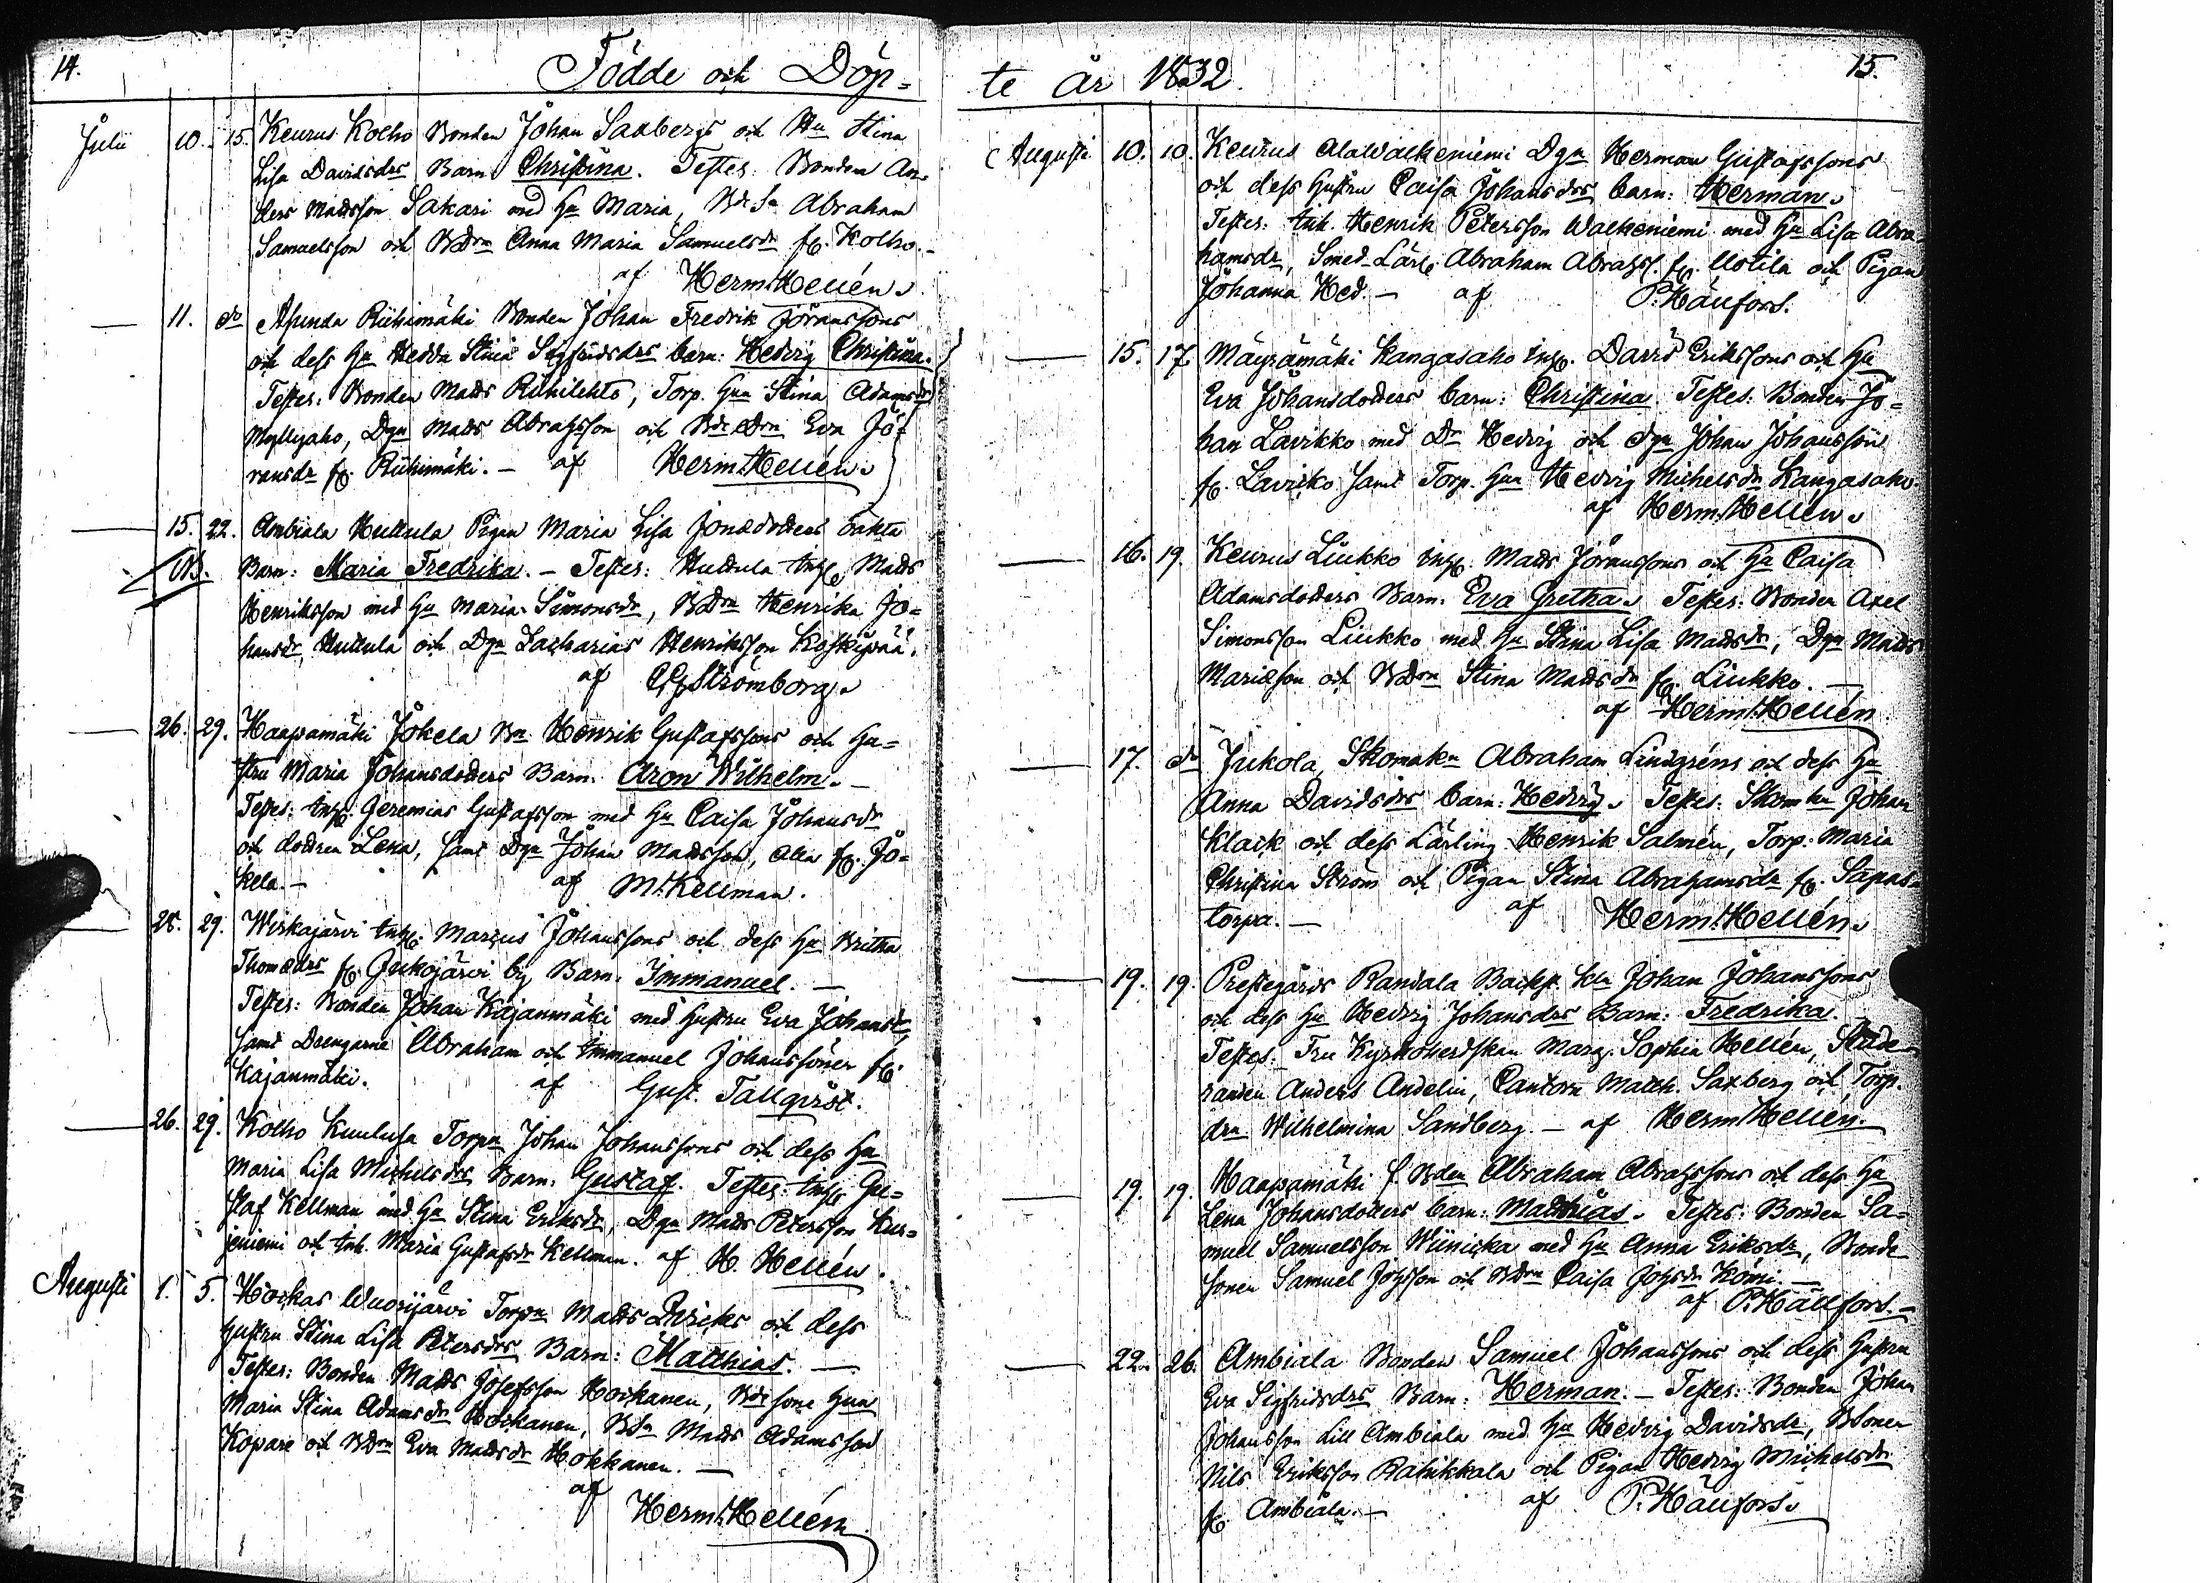 14.
Födde och Döp=
Julii 10. 15. Keurus Kolho Bonden Johan Saxbergs och Hu Stina
Lisa Davidsdrs Barn Christina. Testes. Bonden An=
ders Madsson Sakari med Hu Maria, BdeSn Abraham
Samuelsson och BDrn Anna Maria Samuelsdr fr. Kolho.-
af Herm. Hellén.
11. do Apunda Riihimäki Bonden Johan Fredrik Jöranssons
och dess Hu Hedda Stina Sigfridsdrs barn: Hedvig Christina.
Testes: Bonden Matts Riihilehto, Torp. Hun Stina Adamsdr
Myllyaho, Dgn Mats Abrahsson och BdeDrn Eva Jö=
ransdr fr. Riihimäki.- af Herm. Hellén.
15. 22. Ambiala Huttula Pigan Maria Lisa Jonædotters oäkta
NB. Barn: Maria Fredrika.- Testes: Huttula Inhs. Matts
Henriksson med Hu Maria Simonsdr, BDrn Henrika Jo=
hansdr, Huttula och Dgn Zacharias Henriksson Koskipää.
af CG Strömborg.
26. 29. Haapamäki Jokela Bn Henrik Gustafssons och Hu=
stru Maria Johansdotters Barn. Aron Wilhelm.-
Testes: Inhs. Jeremias Gustafsson med Hu Caisa Johansdr
och dottren Lena, samt Dgn Johan Madsson, alla fr. Jo=
kela.- af M. Kellman.
28. 29. Wirkajärvi Inhs. Marcus Johanssons och dess Hu Britha
Thomædrs fr. Jukojärvi by Barn. Immanuel.-
Testes: Bonden Johan Kajanmäki med hustru Eva Johansdr,
samt Drengarne Abraham och Immanuel Johanssöner fr.
Kajanmäki. af Gust. Tallqvist.
26. 29. Kolho Kuulusa Torpn Johan Johanssons och dess Hu
Maria Lisa Michelsdrs Barn. Gustaf. Testes. Inhs. Gu=
staf Kellman med Hu Stina Eriksdr, Dgn Mads Petersson Kur=
jeniemi och Inh. Maria Gustafsdr Kellman. af H. Hellén.
Augusti 1. 5. Hockas Wuorijärvi Torpn Matts Eriks och dess
hustru Stina Lisa Petersdrs Barn: Matthias.-
Testes: Bonden Matts Josefsson Hockanen, Bde sone Hun
Maria Stina Adamsdr Hockanen, BSn Matts Adamsson
Kopare och BDrn Eva Mattsdr Hokkanen.-
af Herm. Hellén
15.
te År 1832.
Augusti 10. 10. Keurus Alawalkeniemi Dgn Herman Gustafssons
och dess hustru Caisa Johansdrs barn: Herman.
Testes: Inh. Henrik Petersson Walkeniemi med Hu Lisa Abra=
hamsdr, Smed-Lärl. Abraham Abrahss. fr. Uotila och Pigan
Johanna Hed.- af P. Hällfors.
15. 17. Mäyrämäki Kangasaho Inhs. David Erikssons och Hu
Eva Johansdotters barn: Christina. Testes. Bonden Jo=
han Lavikko med Dr Hedvig och dgn Johan Johansson
fr. Lavikko samt Torp. Hun Hedvig Michelsdr Kangasaho.
af Herm. Hellén.
16. 19. Keurus Liukko Inhs. Matts Jöranssons och Hu Caisa
Adamsdotters Barn. Eva Gretha. Testes: Bonden Axel
Simonsson Liukko med Hu Stina Lisa Mattsdr, Dgn Matts
Mariæson och BDrn Stina Mattsdr fr. Liukko.-
af Herm. Hellén
17. do Jukola, Skomakn Abraham Lindgréns och dess Hu
Anna Davidsdrs barn: Hedvig. Testes: Skomkn Johan
Klack och dess Lärling Henrik Salmén, Torp. Maria
Christina Ström och Pigan Stina Abrahamsdr fr. Säpas=
torpa.- af Herm. Hellén.
19. 19. Prestegårds Randala Backst. kn Johan Johanssons
och dess Hu Hedvig Johansdrs Barn: Fredrika.-
Testes: Fru Kyrkoherdskan Marg. Sophia Hellén, Stude=
randen Anders Andelin, Cantorn Matth. Saxberg och Torp.
drn Wilhelmina Sandberg.- af Herm. Hellén.
19. 19. Haapamäki f. Bden Abraham Abrahssons och dess Hu
Lena Johansdotters barn: Matthias. Testes: Bonden Sa=
muel Samuelsson Wiinicka med Hu Anna Eriksdr, Bonde=
sonen Samuel Johsson och BDrn Caisa Johsdr Kömi.-
af P. Hällfors.-
22. 26. Ambiala Bonden Samuel Johanssons och dess hustru
Eva Sigfridsdrs Barn: Herman.- Testes: Bonden Johan
Johansson Lill Ambiala med Hu Hedvig Davidsdr, BSonen
Nils Eriksson Rahikkala och Pigan Hedvig Michelsdr
fr. Ambiala.- af P. Hällfors.